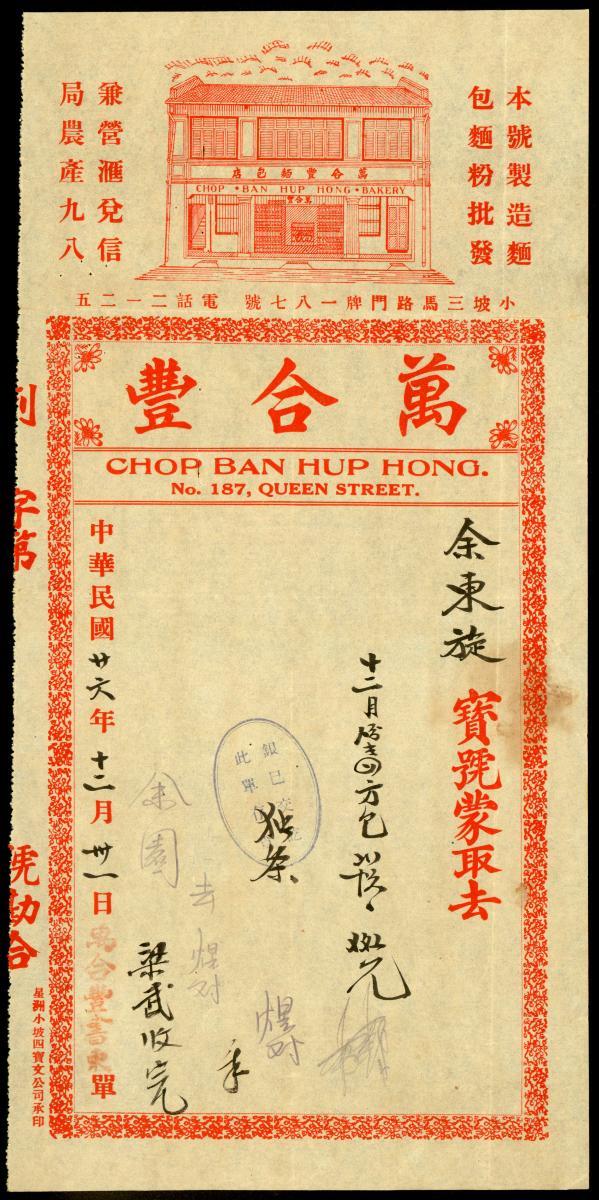 本號製造麵
包麵粉批發
兼營滙兌信
局農產九八
店包麵豐合萬
CHOP · BAN HUP HONG · BAKERY
豐合萬
五二一二話電 號七八一牌門路馬三坡小
豐合萬
CHOP BAN HUP HONG.
No. 187, QUEEN STREET.
余東旋 寶號蒙取去
十二月份去四方包
銀已交
此單
梁武收完
余園
中華民國廿六年十二月卅一日 萬合豐書柬 單
列 字第 號勘合
星洲小坡四寶文公司承印